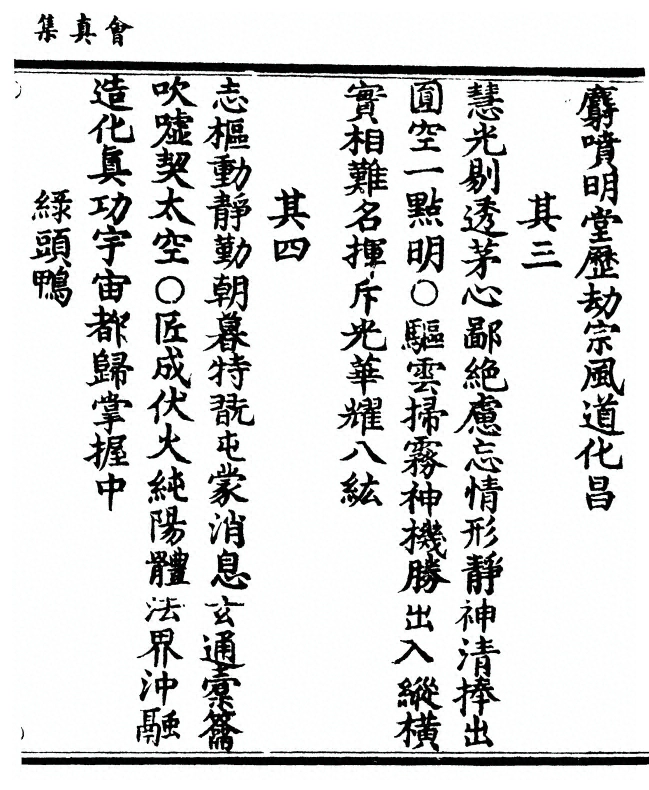 會真集
麝噴明堂歷劫宗風道化昌
其三
慧光剔透茅心鄙絶慮忘情形靜神清捧出
圓空一點明○驅雲掃霧神機勝出入縱橫
實相難名揮斥光華耀八紘
其四
志樞動靜勤朝暮特翫屯蒙消息玄通橐籥
吹噓契太空○匠成伏火純陽體法界沖融
造化真功宇宙都歸掌握中
緑頭鴨